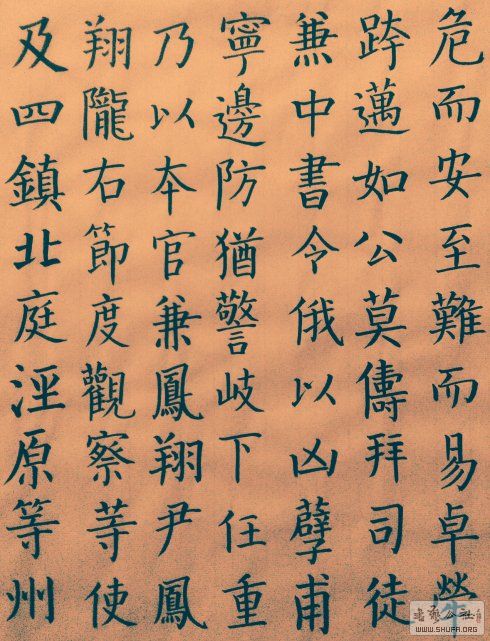 危而安至難而易卓犖
跨邁如公莫儔拜司徒
兼中書令俄以凶孽甫
寧邊防猶警岐下任重
乃以本官兼鳳翔尹鳳
翔隴右節度觀察等使
及四鎮北庭涇原等州
WWW.SHUFA.ORG